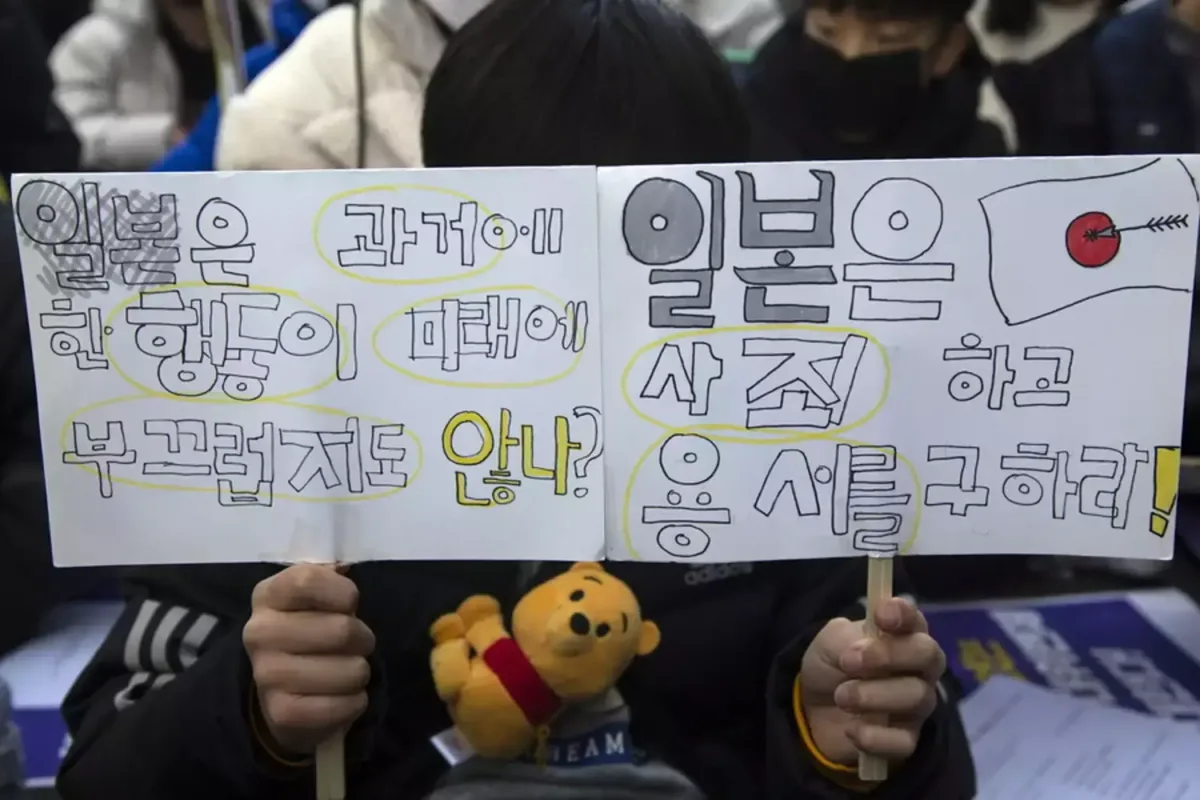 일본은 과거에
한 행동이 미래에
부끄럽지도 않나?
일본은
사죄 하고
용서를 구하라!
adidas
TEAM